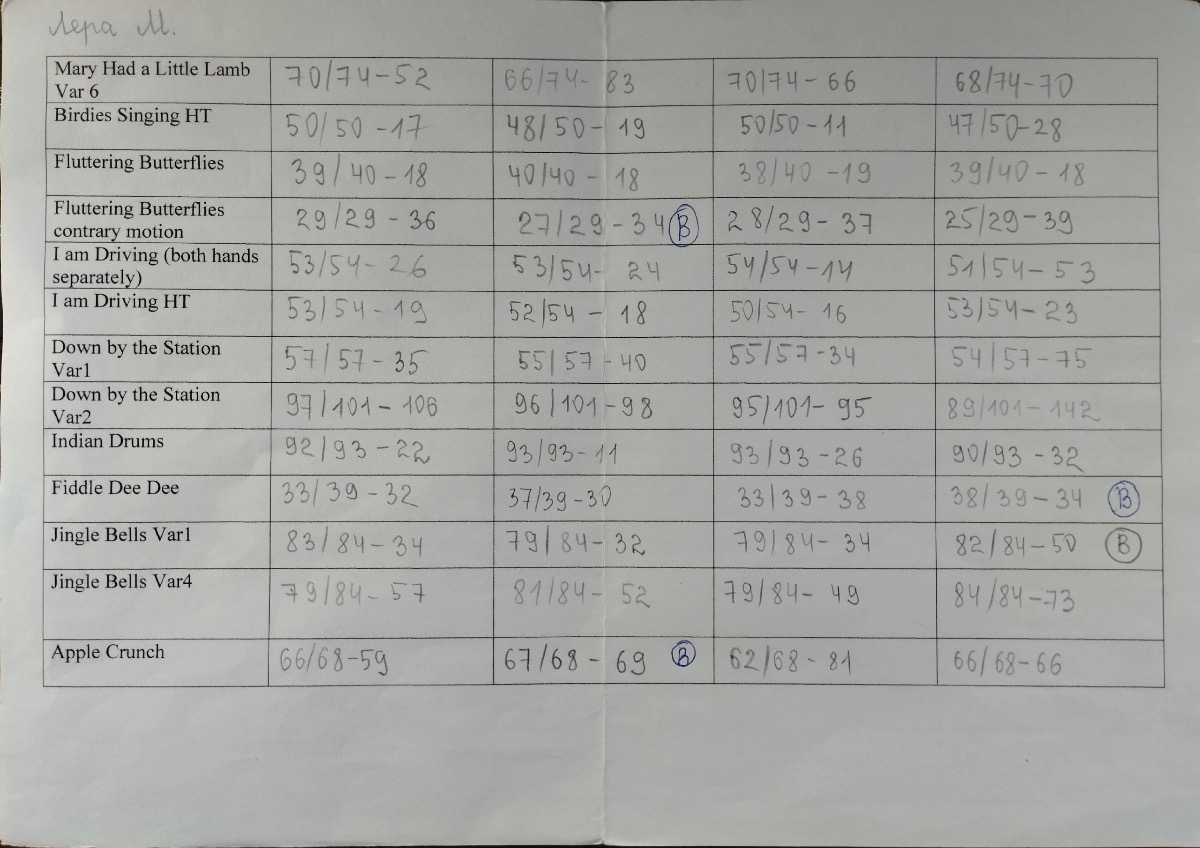 Лера М.
Mary Had a Little Lamb Var 6 70/74-52 66/74-83 70/74-66 68/74-70
Birdies Singing HT 50/50-17 48/50-19 50/50-11 47/50-28
Fluttering Butterflies 39/40-18 40/40-18 38/40-19 39/40-18
Fluttering Butterflies contrary motion 29/29-36 27/29-34 B 28/29-37 25/29-39
I am Driving (both hands separately) 53/54-26 53/54-24 54/54-14 51/54-53
I am Driving HT 53/54-19 52/54-18 50/54-16 53/54-23
Down by the Station Var1 57/57-35 55/57-40 55/57-34 54/57-75
Down by the Station Var2 97/101-106 96/101-98 95/101-95 89/101-142
Indian Drums 92/93-22 93/93-11 93/93-26 90/93-32
Fiddle Dee Dee 33/39-32 37/39-30 33/39-38 38/39-34 B
Jingle Bells Var1 83/84-34 79/84-32 79/84-34 82/84-50 B
Jingle Bells Var4 79/84-57 81/84-52 79/84-49 84/84-73
Apple Crunch 66/68-59 67/68-69 B 62/68-81 66/68-66